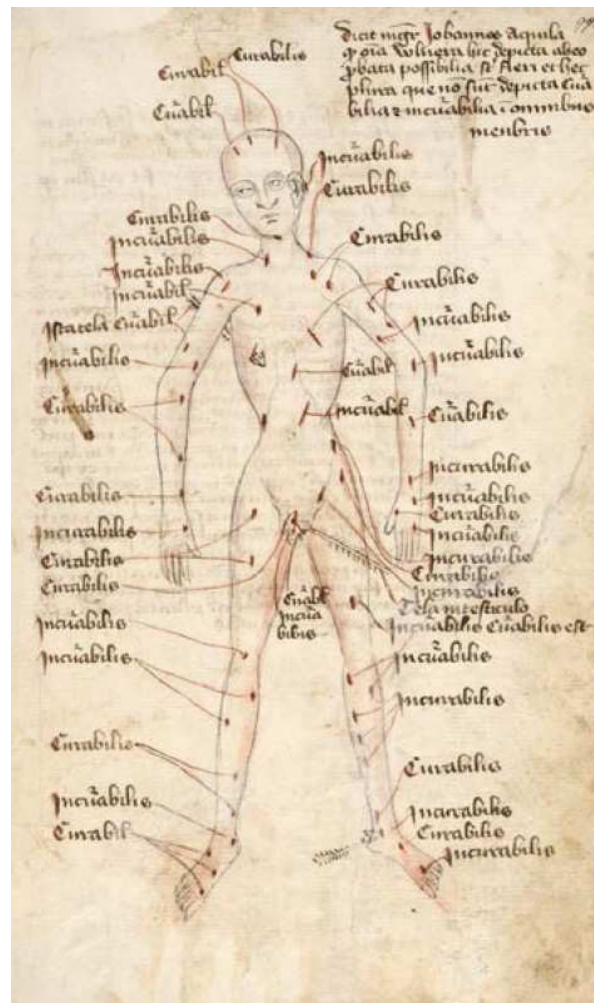 dicit mgr Johannes Aquila
q oīa vulnera hic depicta
pbata possibilia st fieri et hec
plura que nō sūt depicta Cūa
bilia & incūabilia ī omnibus
menbris
Curabilis
Curabil
Cūabil
Incūabilis
Curabilis
Curabilis
Curabilis
Incūabilis
Incūabilis
Curabilis
Incūabil
Cūabil
Incūabilis
Incūabilis
Incūabilis
Cūabil
Curabilis
Incūabil
Cūabilis
Incurabilis
Curabilis
Incūabilis
Curabilis
Incurabilis
Incūabilis
Curabilis
Incurabilis
Curabilis
Curabilis
Incurabilis
Cūabil
Tela in testiculo
Incūa
bilis
Incūabilis Cūabilis est
Incūabilis
Incūabilis
Incūabilis
Incurabilis
Curabilis
Curabilis
Incūabilis
Incurabilis
Curabil
Curabilis
Incurabilis